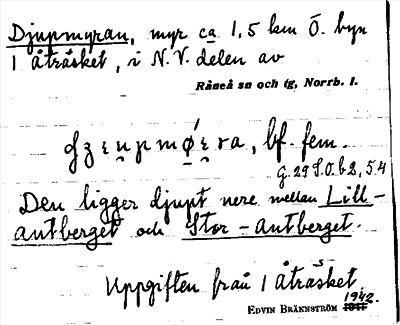 Djupmyran, myr ca 1,5 km Ö. byn
1 åträsket, i N.V. delen av
Råneå sn och tg, Norrb. l.
bf. fem.
G. 29 S.O. b 2, 54
Den ligger djupt nere mellan Lill-
antberget och Stor-antberget.
Uppgiften från 1 åträsket.
1942.
EDVIN BRÄNNSTRÖM 1941